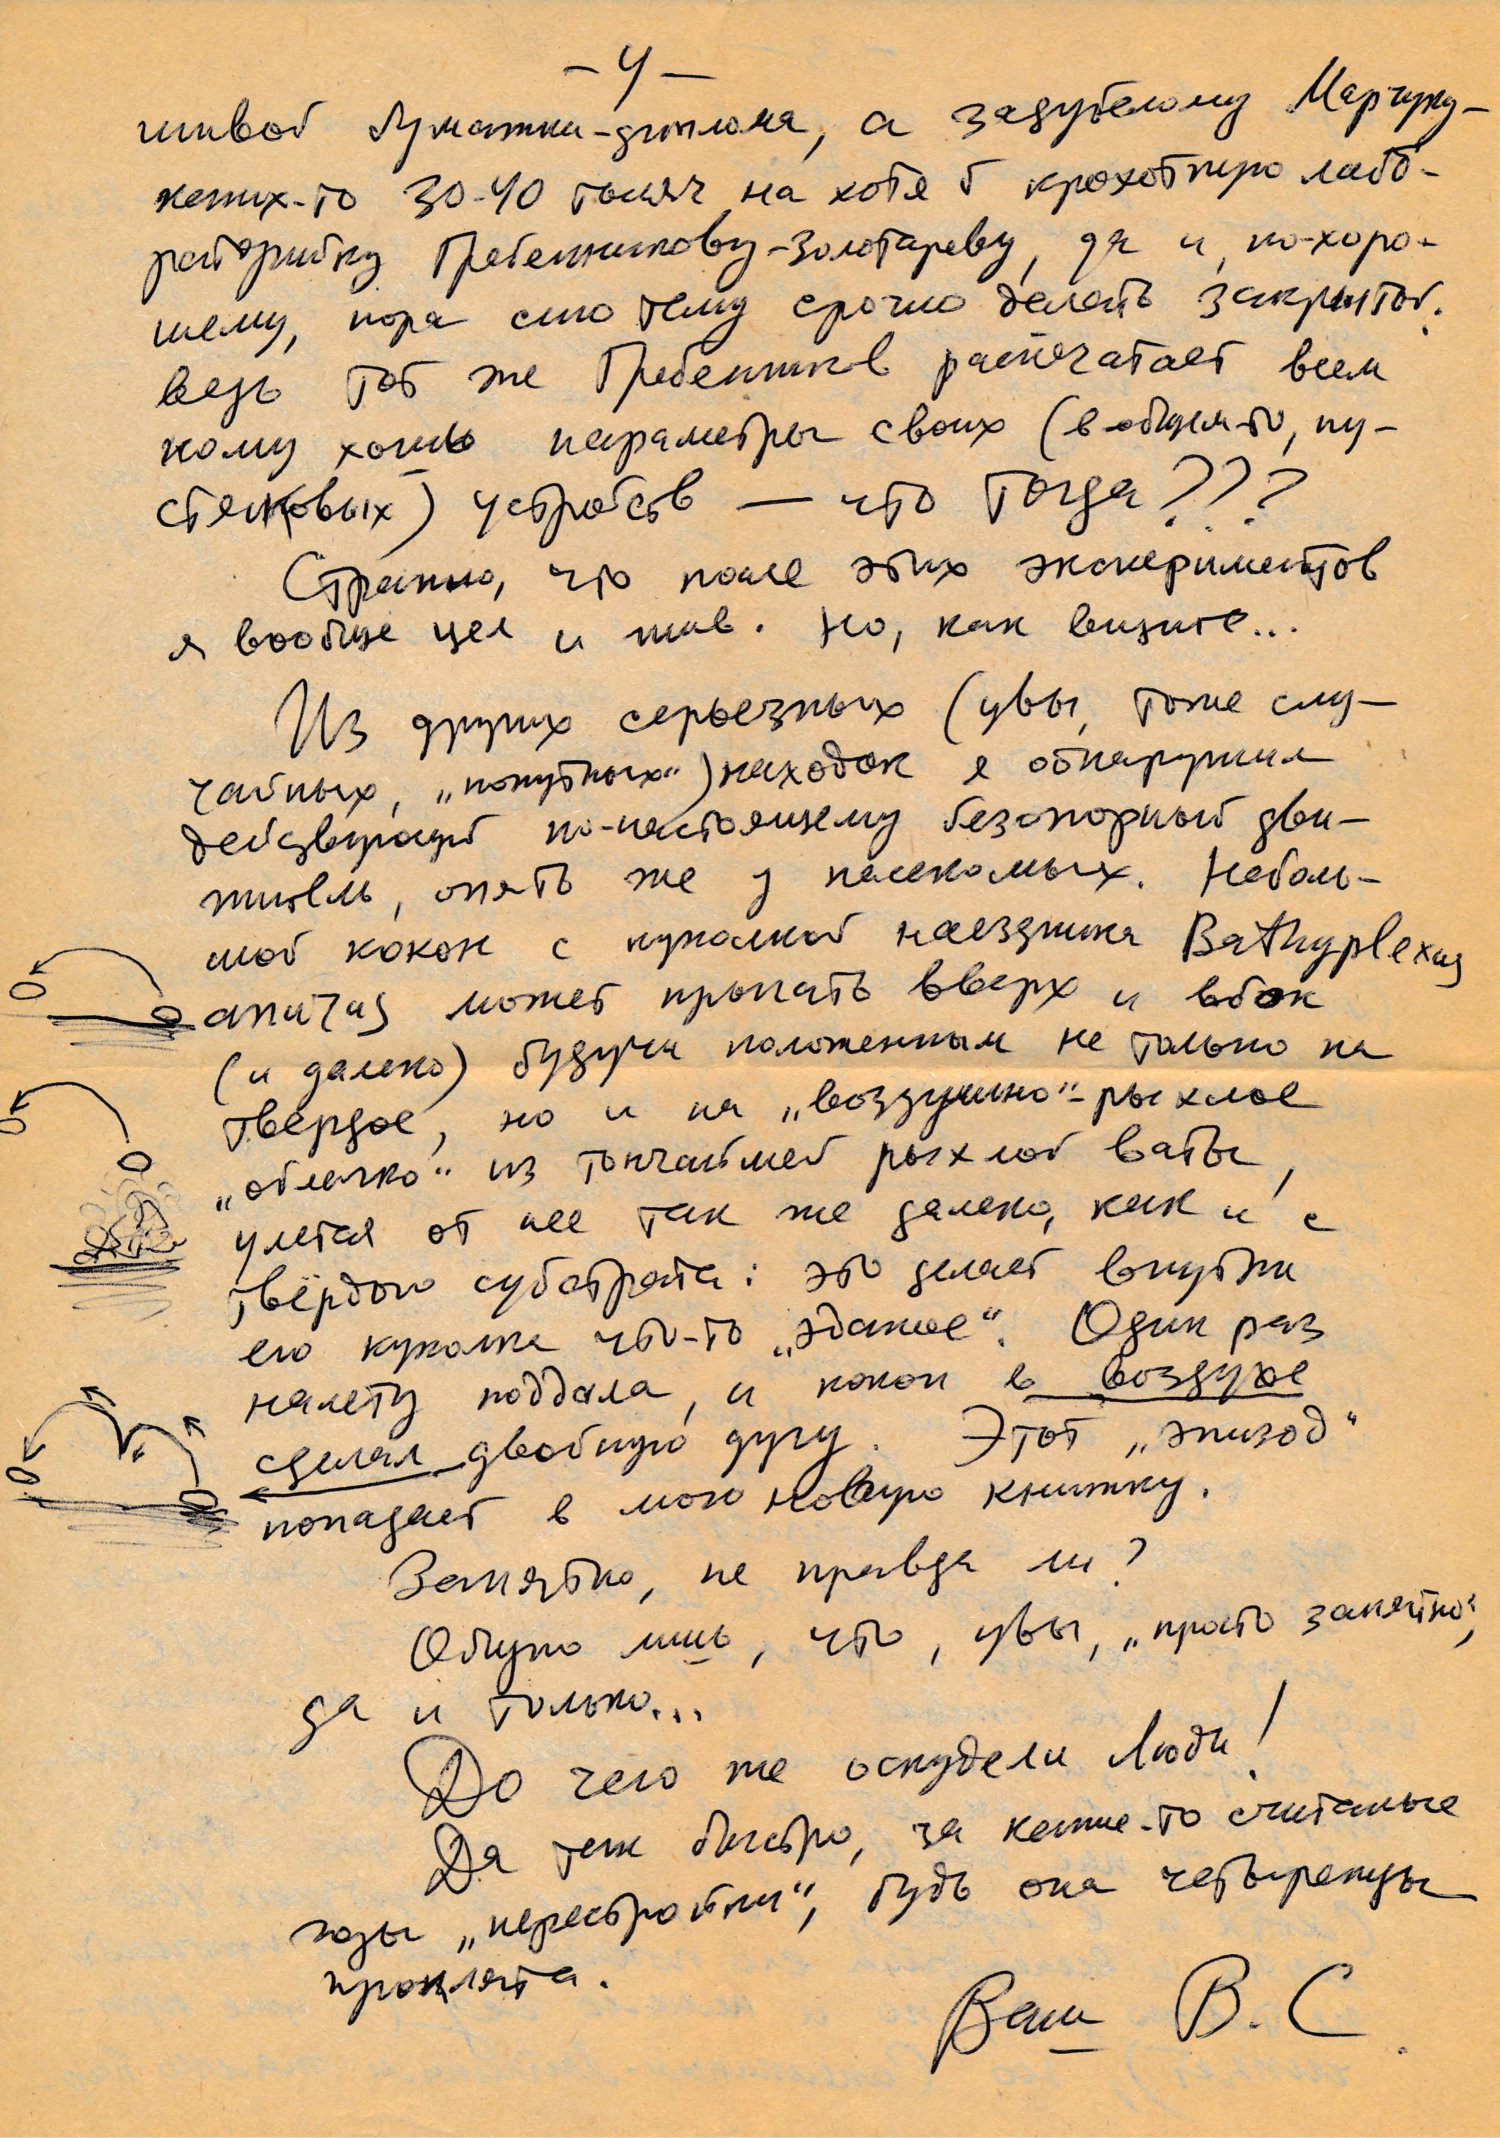 – 4 –
шивой бумажки-диплома, а задубелому Марчуку –
каких-то 30-40 тысяч на хотя б крохотную лабо-
раторийку Гребенникову-Золотареву, да и, по-хоро-
шему, пора сию тему срочно делать закрытой:
ведь тот же Гребенников распечатает всем
кому хошь параметры своих (в общем-то, пу-
стяковых) устройств — что тогда???
Странно, что после этих экспериментов
я вообще цел и жив. Но, как видите...
Из других серьезных (увы, тоже слу-
чайных, „попутных“) находок я обнаружил
действующий по-настоящему безопорный дви-
житель, опять же у насекомых. Неболь-
шой кокон с куколкой наездника Bathyplexus
может прыгать вверх и вбок
(и далеко) будучи положенным не только на
твердое, но и на „воздушно“-рыхлое
„облачко“ из тончайшей рыхлой ваты,
улетая от нее так же далеко, как и с
твёрдого субстрата: это делает внутри
его куколка что-то „эдакое“. Один раз
налету поддала, и кокон в воздухе
сделал двойную дугу. Этот „эпизод“
попадает в мою новую книжку.
Занятно, не правда ли?
Обидно лишь, что, увы, „просто занятно“,
да и только...
До чего же оскудели Люди!
Да так быстро, за какие-то считаные
годы „перестройки“, будь она четырежды
проклята.
Ваш В. С.